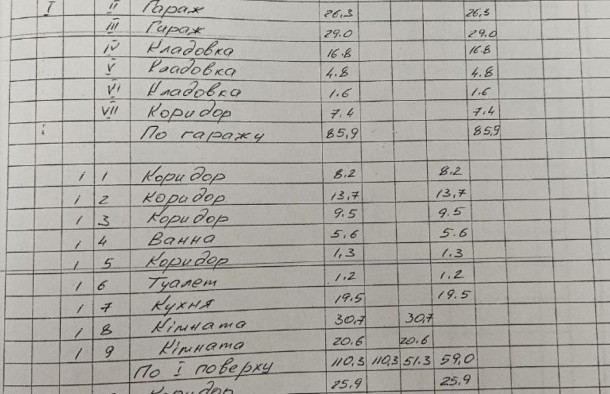 I II Гараж 26,3 26,3
III Гараж 29.0 29.0
IV Кладовка 16.8 16.8
V Кладовка 4.8 4.8
VI Кладовка 1.6 1.6
VII Коридор 7.4 7.4
По гаражу 85,9 85,9
1 1 Коридор 8.2 8.2
1 2 Коридор 13,7 13,7
1 3 Коридор 9.5 9.5
1 4 Ванна 5.6 5.6
1 5 Коридор 1,3 1.3
1 6 Туалет 1.2 1.2
1 7 Кухня 19.5 19.5
1 8 Кімната 30,7 30,7
1 9 Кімната 20.6 20.6
По I поверху 110,3 110,3 51.3 59,0
Коридор 25,9 25,9